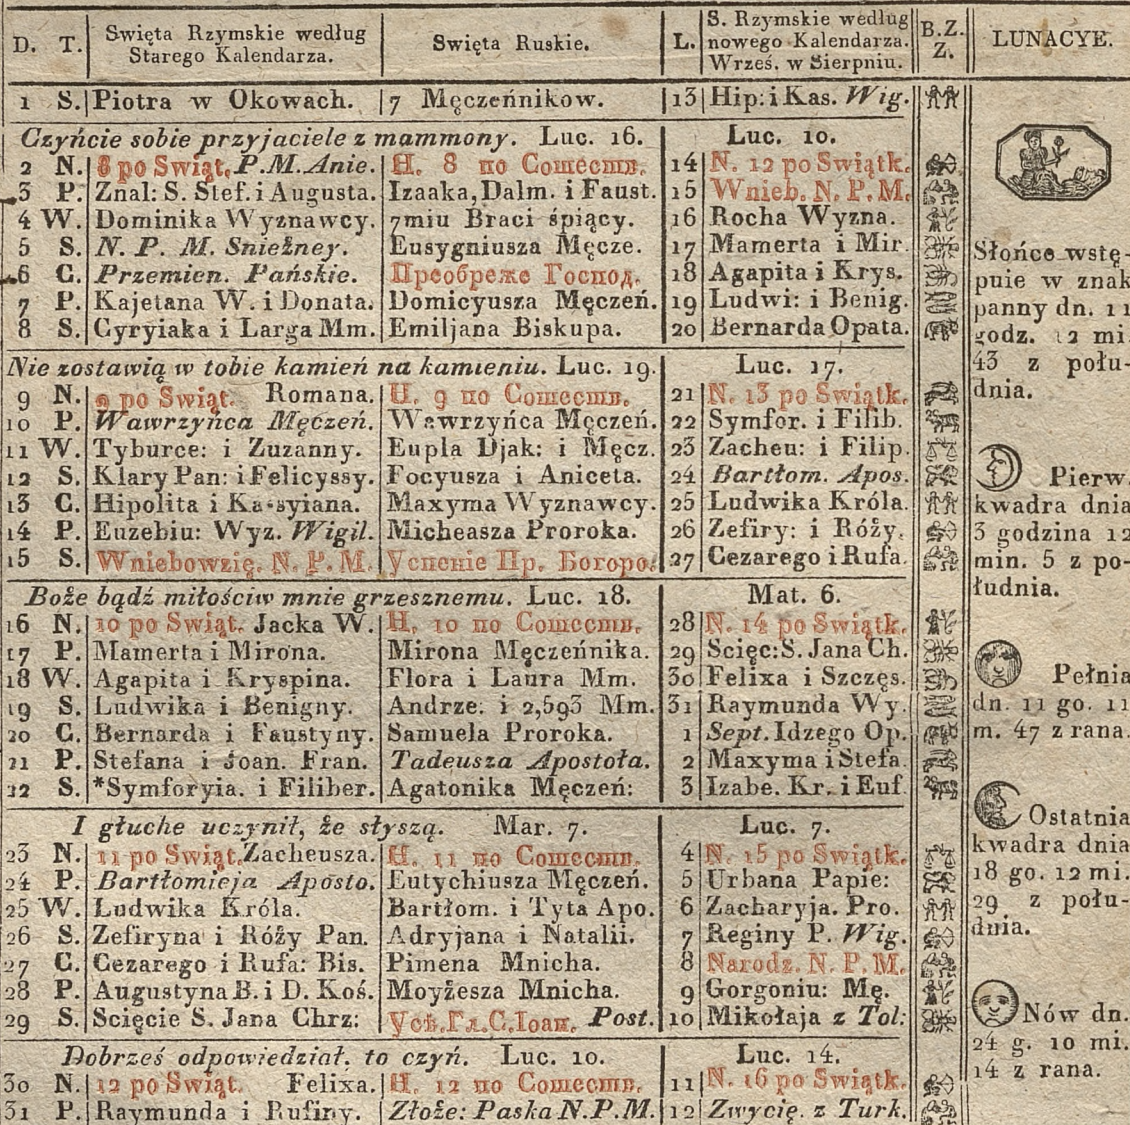 D. T. Swięta Rzymskie według Starego Kalendarza. Swięta Ruskie. L. S. Rzymskie według nowego Kalendarza. Wrześ. w Sierpniu. B.Z. Z. LUNACYE.
1 S. Piotra w Okowach. 7 Męczeńnikow. 13 Hip: i Kas. Wig.
Czyńcie sobie przyjaciele z mammony. Luc. 16. Luc. 10.
2 N. 8 po Swiąt. P.M.Anie. Н. 8 по Сошеств. 14 N. 12 po Swiątk.
3 P. Znal: S. Stef. i Augusta. Izaaka, Dalm. i Faust. 15 Wnieb. N. P. M.
4 W. Dominika Wyznawcy. 7miu Braci śpiący. 16 Rocha Wyzna.
5 S. N. P. M. Snieżney. Eusygniusza Męcze. 17 Mamerta i Mir.
6 C. Przemien. Pańskie. Преображе Господ. 18 Agapita i Krys.
7 P. Kajetana W. i Donata. Domicyusza Męczeń. 19 Ludwi: i Benig.
8 S. Cyryiaka i Larga Mm. Emiljana Biskupa. 20 Bernarda Opata.
Nie zostawią w tobie kamień na kamieniu. Luc. 19. Luc. 17.
9 N. 9 po Swiąt. Romana. Н. 9 по Сошеств. 21 N. 13 po Swiątk.
10 P. Wawrzyńca Męczeń. Wawrzyńca Męczeń. 22 Symfor. i Filib.
11 W. Tyburce: i Zuzanny. Eupla Djak: i Męcz. 23 Zacheu: i Filip.
12 S. Klary Pan: i Felicyssy. Focyusza i Aniceta. 24 Bartłom. Apos.
13 C. Hipolita i Kassyiana. Maxyma Wyznawcy. 25 Ludwika Króla.
14 P. Euzebiu: Wyz. Wigil. Micheasza Proroka. 26 Zefiry: i Róży.
15 S. Wniebowzię. N. P. M. Успеніе Пр. Богоро. 27 Cezarego i Rufa.
Boże bądź miłościw mnie grzesznemu. Luc. 18. Mat. 6.
16 N. 10 po Swiąt. Jacka W. Н. 10 по Сошеств. 28 N. 14 po Swiątk.
17 P. Mamerta i Mirona. Mirona Męczeńnika. 29 Scięc: S. Jana Ch.
18 W. Agapita i Kryspina. Flora i Laura Mm. 30 Felixa i Szczęs.
19 S. Ludwika i Benigny. Andrze: i 2,593 Mm. 31 Raymunda Wy.
20 C. Bernarda i Faustyny. Samuela Proroka. 1 Sept. Idzego Op.
21 P. Stefana i Joan. Fran. Tadeusza Apostoła. 2 Maxyma i Stefa.
22 S. *Symforyia. i Filiber. Agatonika Męczeń: 3 Izabe. Kr. i Euf.
I głuche uczynił, że słyszą. Mar. 7. Luc. 7.
23 N. 11 po Swiąt. Zacheusza. Н. 11 по Сошеств. 4 N. 15 po Swiątk.
24 P. Bartłomieja Aposto. Eutychiusza Męczeń. 5 Urbana Papie:
25 W. Ludwika Króla. Bartłom. i Tyta Apo. 6 Zacharyja. Pro.
26 S. Zefiryna i Róży Pan. Adryjana i Natalii. 7 Reginy P. Wig.
27 C. Cezarego i Rufa: Bis. Pimena Mnicha. 8 Narodz. N. P. M.
28 P. Augustyna B. i D. Koś. Moyżesza Mnicha. 9 Gorgoniu: Mę.
29 S. Scięcie S. Jana Chrz: Усѣ. Гл. С. Іоан. Post. 10 Mikołaja z Tol:
Dobrześ odpowiedział. to czyń. Luc. 10. Luc. 14.
30 N. 12 po Swiąt. Felixa. Н. 12 по Сошеств. 11 N. 16 po Swiątk.
31 P. Raymunda i Rufiny. Złoże: Paska N.P.M. 12 Zwycię. z Turk.
Słońce wstę-
puie w znak
panny dn. 11
godz. 12 mi.
43 z połu-
dnia.
Pierw.
kwadra dnia
3 godzina 12
min. 5 z po-
łudnia.
Pełnia
dn. 11 go. 11
m. 47 z rana.
Ostatnia
kwadra dnia
18 go. 12 mi.
29 z połu-
dnia.
Nów dn.
24 g. 10 mi.
14 z rana.